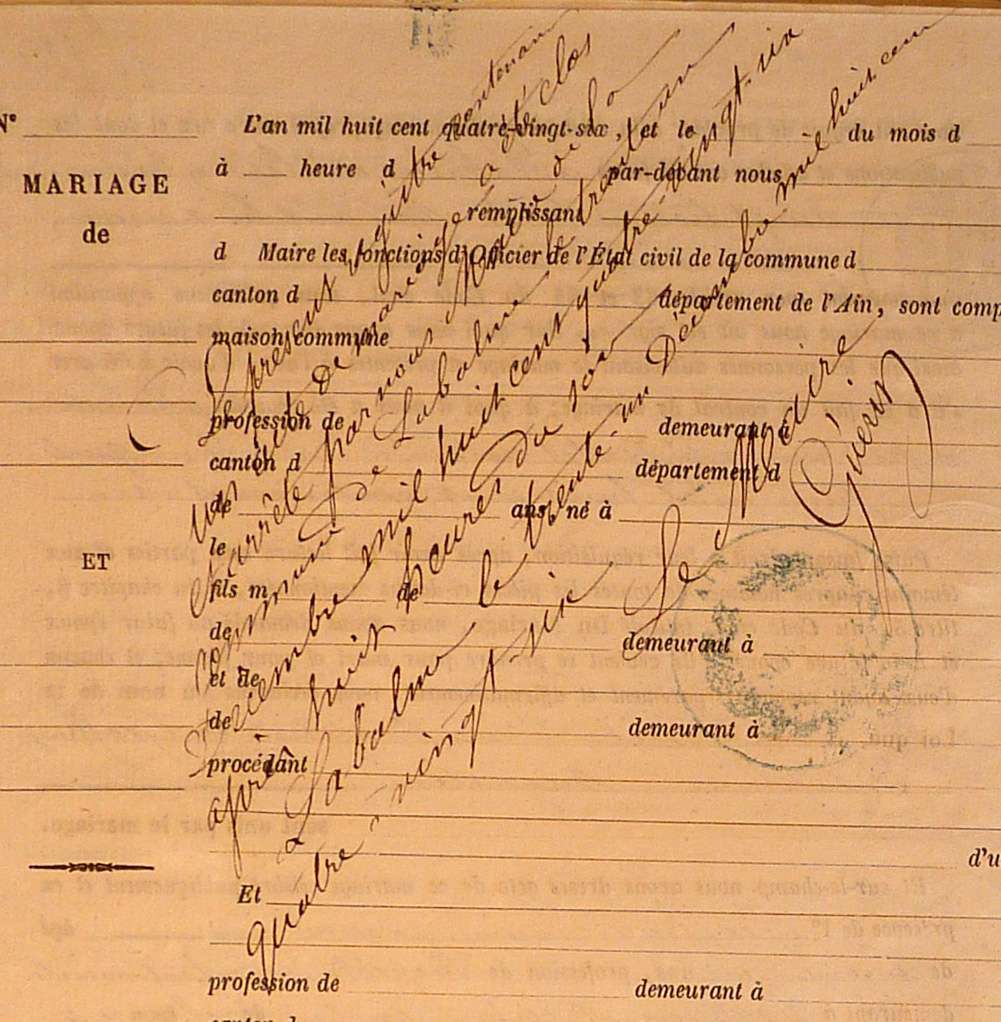 N°
MARIAGE
de
ET
L'an mil huit cent quatre-vingt-six, et le du mois d
à heure d par-devant nous
remplissant
d Maire les fonctions d'Officier de l'État civil de la commune d
canton d département de l'Ain, sont comp
maison commune
profession de demeurant à
canton d département d
de ans, né à
le
fils m de
de demeurant à
et de
de demeurant à
procédant
d'u
Et
profession de demeurant à
canton d
Le présent régistre contenan
un acte de mariage a été clos
et arrêté par nous Maire de la
commune de Labalme le trente un
Décembre mil huit cent quatre-vingt-six
après huit heures du soir
a Labalme le trente-un Décembre mil huit cen
quatre-vingt-six
Le Maire
Guérin